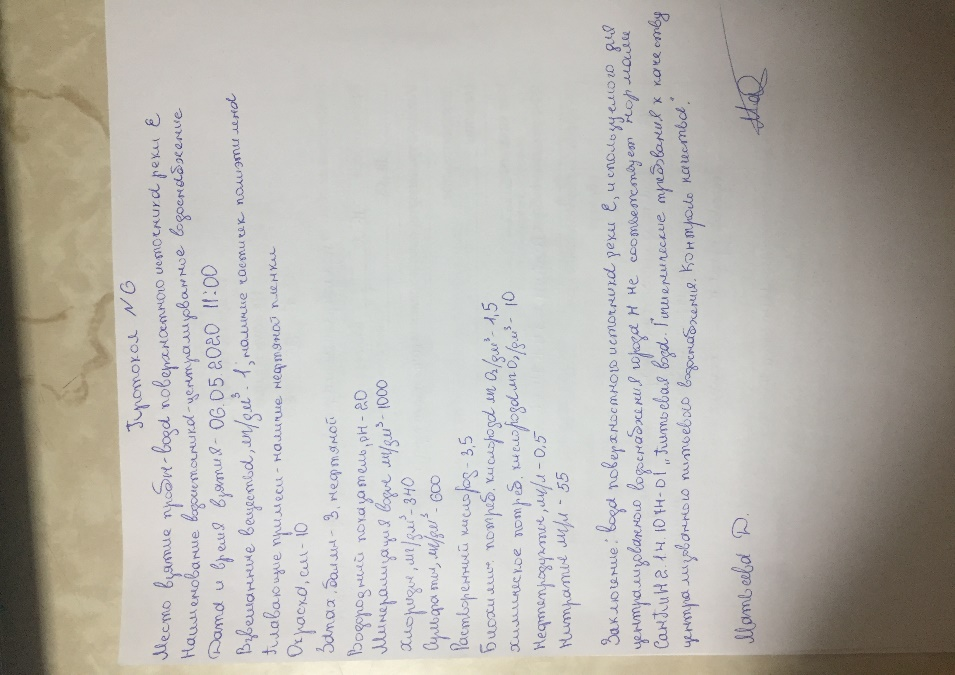 Протокол №6
Место взятие пробы - вода поверхностного источника реки Е
Наименование водоисточника - централизованное водоснабжение
Дата и время взятия - 06.05.2020 11:00
Взвешанные вещества, мг/дм³ - 1; наличие частичек полиэтилена
Плавающие примеси - наличие нефтяной пленки
Окраска, см - 10
Запах, балы - 3, нефтяной
Водородний показатель, рН - 20
Минерализация воды мг/дм³ - 1000
Хлориды, мг/дм³ - 340
Сульфаты, мг/дм³ - 600
Растворенний кислород - 3,5
Биохимич. потреб. кислорода мг О₂/дм³ - 1,5
Химическое потреб. кислорода мг О₂/дм³ - 10
Нефтепродукты, мг/л - 0,5
Нитраты мг/л - 55
Заключение: вода поверхностного источника реки Е, используемого для
централизованного водоснабжения города Н не соответствует нормами
СанПиН 2.1.4.1074-01 „Питьевая вода. Гигиенические требования к качеству
централизованного питьевого водоснабжения. Контроль качества".
Матвеева Д.